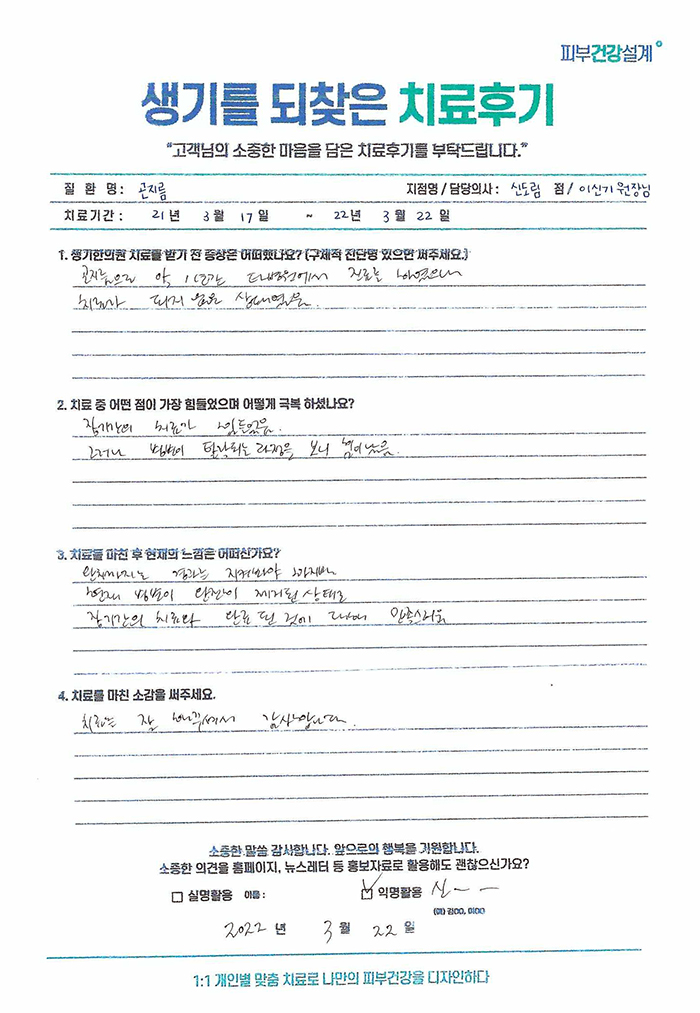 피부건강설계
생기를 되찾은 치료후기
"고객님의 소중한 마음을 담은 치료후기를 부탁드립니다."
질 환 명 : 곤지름 지점명 / 담당의사 : 신도림 점 / 이신기 원장님
치료기간 : 21년 3월 17일 ~ 22년 3월 22일
1. 생기한의원 치료를 받기 전 증상은 어떠했나요? (구체적 진단명 있으면 써주세요.)
곤지름으로 약 1년간 병원에서 진료를 하였으나
치료가 되지 않은 상태였음.
2. 치료 중 어떤 점이 가장 힘들었으며 어떻게 극복 하셨나요?
장기간의 치료가 힘들었음.
그러나 병변이 탈락되는 과정을 보니 힘이 났음.
3. 치료를 마친 후 현재의 느낌은 어떠신가요?
완치까지는 경과는 지켜봐야 하지만
현재 병변이 완전히 제거된 상태로
장기간의 치료가 완료 된 것에 대해 만족스러움
4. 치료를 마친 소감을 써주세요.
치료를 잘 해주셔서 감사합니다.
소중한 말씀 감사합니다. 앞으로의 행복을 기원합니다.
소중한 의견을 홈페이지, 뉴스레터 등 홍보자료로 활용해도 괜찮으신가요?
실명활용 이름 : 익명활용 신ㅡㅡ
(예) 김OO, 이OO
2022년 3월 22일
1:1 개인별 맞춤 치료로 나만의 피부건강을 디자인하다